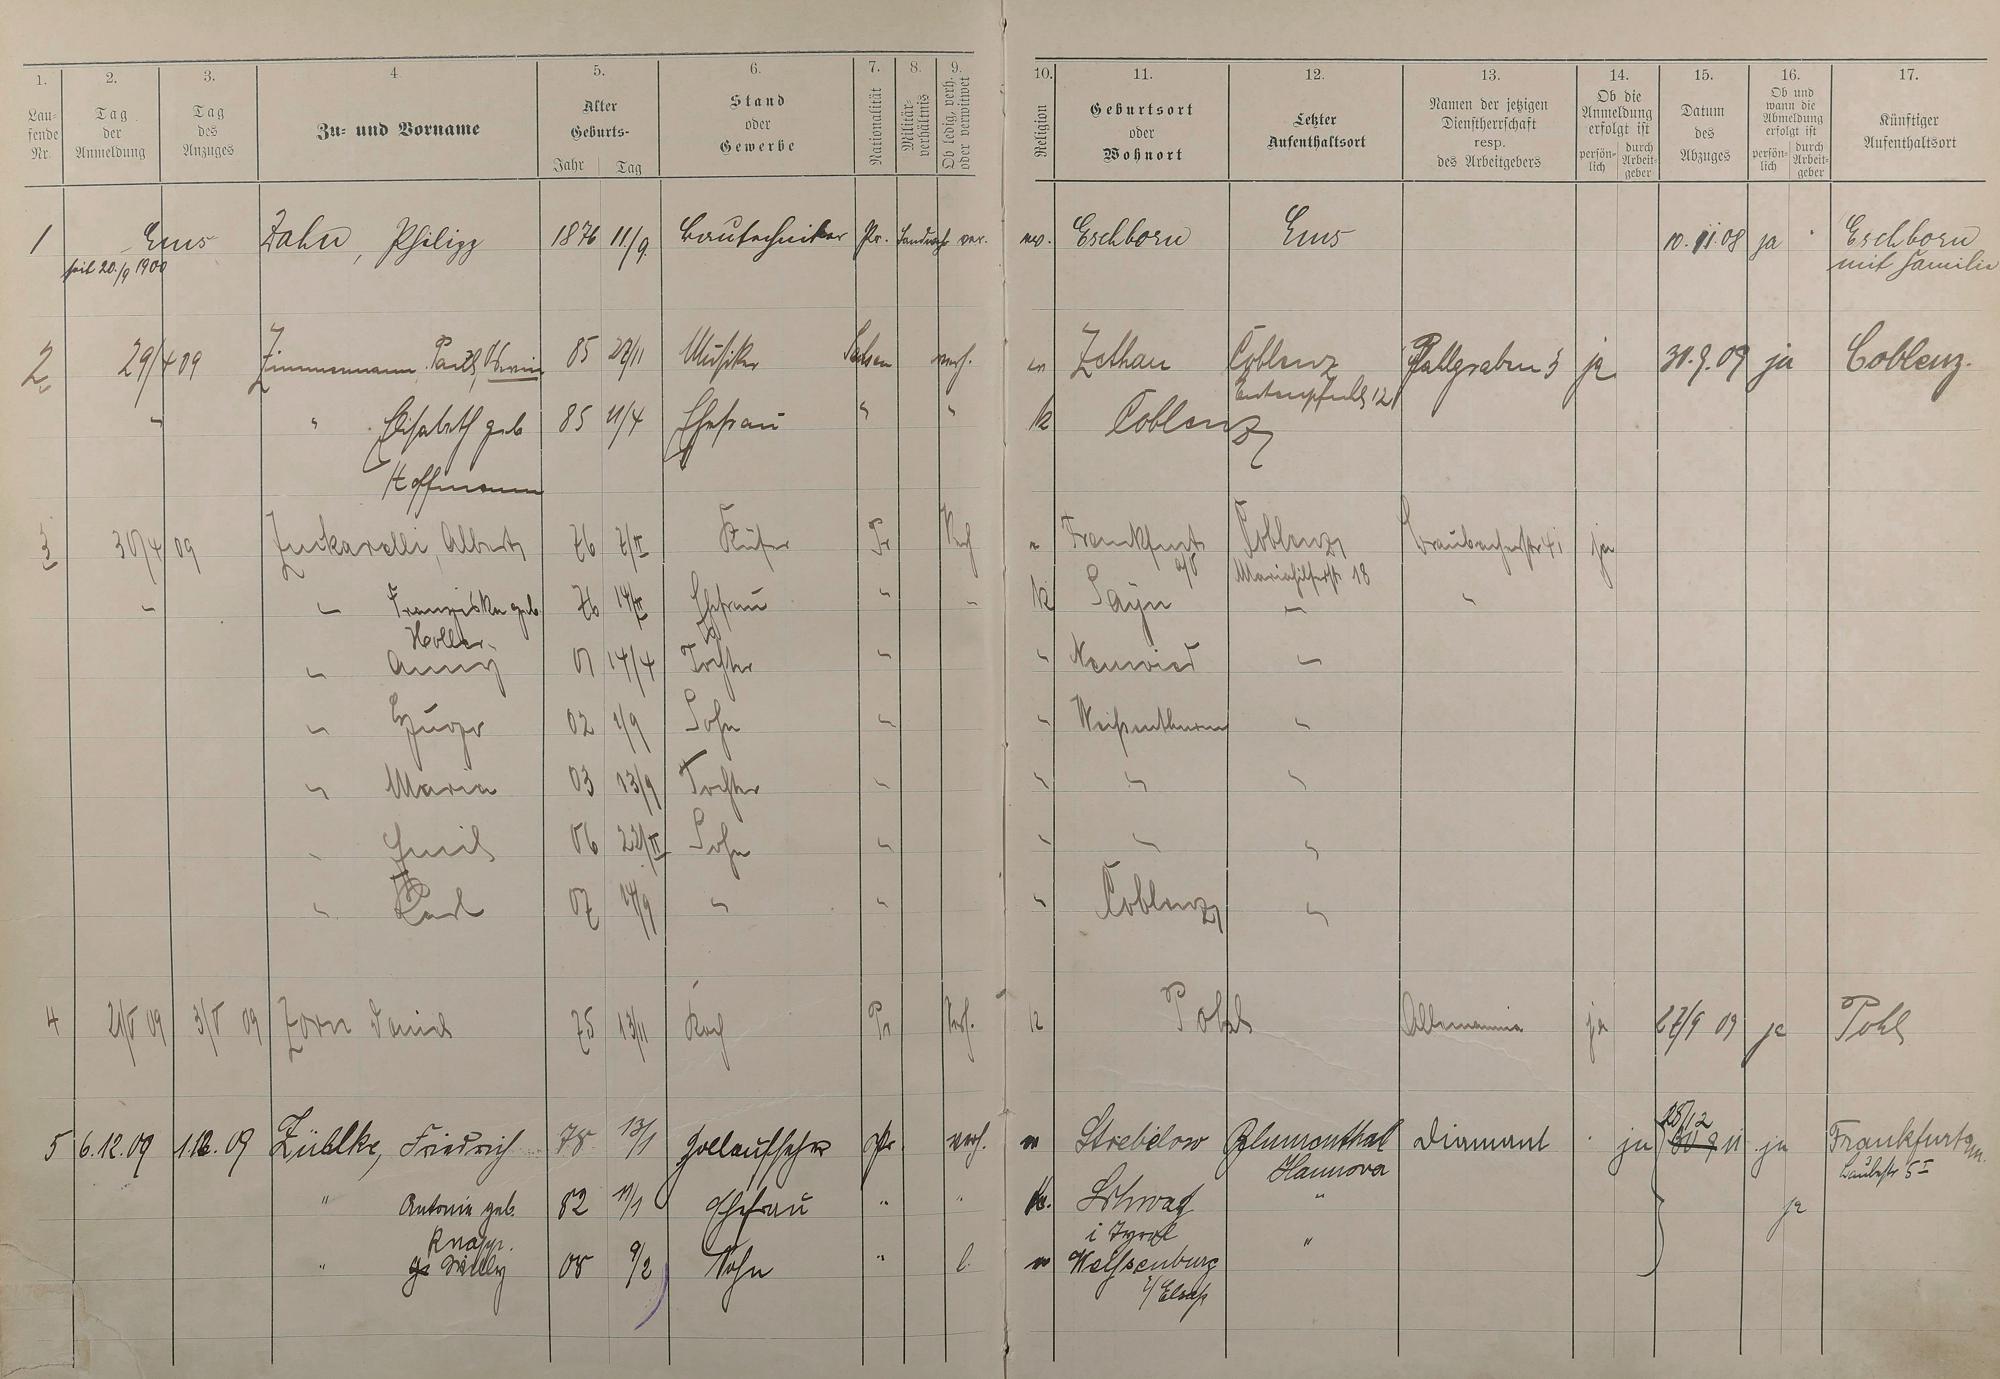 1. 2. 3. 4. 5. 6. 7. 8. 9. 10. 11. 12. 13. 14. 15. 16. 17.
Lau-
fende
Nr.
Tag
der
Anmeldung
Tag
des
Anzuges
Zu- und Vorname
Alter
Geburts-
Jahr Tag
Stand
oder
Gewerbe
Nationalität
Militär-
verhältnis
Ob ledig, verh.
oder verwitwet
Religion
Geburtsort
oder
Wohnort
Letzter
Aufenthaltsort
Namen der jetzigen
Dienstherrschaft
resp.
des Arbeitgebers
Ob die
Anmeldung
erfolgt ist
persön-
lich
durch
Arbeit-
geber
Datum
des
Abzuges
Ob und
wann die
Abmeldung
erfolgt ist
persön-
lich
durch
Arbeit-
geber
Künftiger
Aufenthaltsort
1 Ems Zahn, Philipp 1876 11/9. Bautechniker Pr. Landwehr ver. ev. Eschborn Ems 10. 11. 08 ja Eschborn
seit 20./9 1900 mit Familie
2 29/4 09 Zimmermann, Paul, 85 27/11 Musiker Sachsen verh. ev Zethau Coblenz 3 ja 30.9.09 ja Coblenz.
12
" " Elisabeth geb 85 11/4 Ehefrau " " k Coblenz
Hoffmann
3 30/4 09 Zuckarelli, Albert 76 7/II Küfer Pr Verh " Frankfurt Coblenz Braubacherstr 41 ja
a/O Mariahilfstr 18
" " Franziska geb. 76 14/II Ehefrau " " k Sayn " "
Holler
" Anny 01 14/4 Tochter " " Neuwied "
" Hugo 02 1/9 Sohn " " Weißenthurm "
" Maria 03 13/9 Tochter " " " "
" Emil 06 22/II Sohn " " " "
" Karl 07 14/9 " " " Coblenz "
4 21/V 09 3/V 09 Zorn Daniel 75 13/11 Koch Pr Verh. k Pohl Allemannia ja 27/9 09 ja Pohl
25/12
5 6.12.09 1.12.09 Zühlke, Friedrich 78 13/1 Zollaufseher Pr. verh. ev Strebelow Blumenthal Diamant ja 30 9 11 ja Frankfurt a/m.
Hannover 5 I
" Antonie geb. 82 11/1 Ehefrau " " k. Schwaz " ja
Knapp. i Tyrol
" Willy 08 9/2 Sohn " l. ev Weißenburg "
i/Elsaß